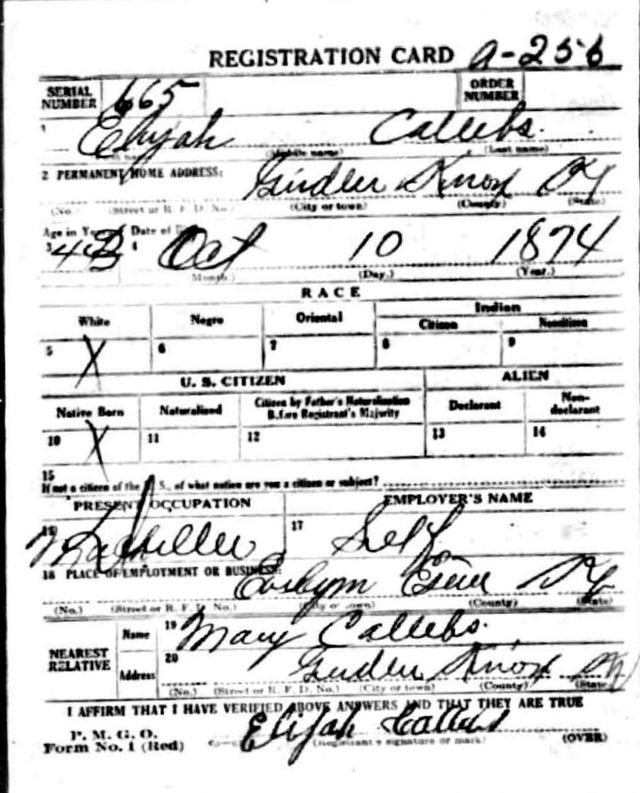 REGISTRATION CARD a-256
SERIAL NUMBER 665 ORDER NUMBER
1 Elijah Callebs.
(Middle name) (Last name)
2 PERMANENT HOME ADDRESS: Girdler Knox Ky
(No.) (Street or R. F. D. No.) (City or town) (County) (State)
Age in Years Date of
3 43 4 Oct 10 1874
(Month.) (Day.) (Year.)
RACE
White Negro Oriental Indian
Citizen Noncitizen
5 X 6 7 8 9
U. S. CITIZEN ALIEN
Native Born Naturalized Citizen by Father's Naturalization Before Registrant's Majority Declarant Non-declarant
10 X 11 12 13 14
15
If not a citizen of the U. S., of what nation are you a citizen or subject?
PRESENT OCCUPATION EMPLOYER'S NAME
16 17 Self
18 PLACE OF EMPLOYMENT OR BUSINESS: Ky
(No.) (Street or R. F. D. No.) (City or town) (County) (State)
NEAREST RELATIVE Name 19 Mary Callebs.
Address 20 Girdler Knox Ky
(No.) (Street or R. F. D. No.) (City or town) (County) (State)
I AFFIRM THAT I HAVE VERIFIED ABOVE ANSWERS AND THAT THEY ARE TRUE
P. M. G. O.
Form No. 1 (Red) Elijah Callebs
(Registrant's signature or mark) (OVER)